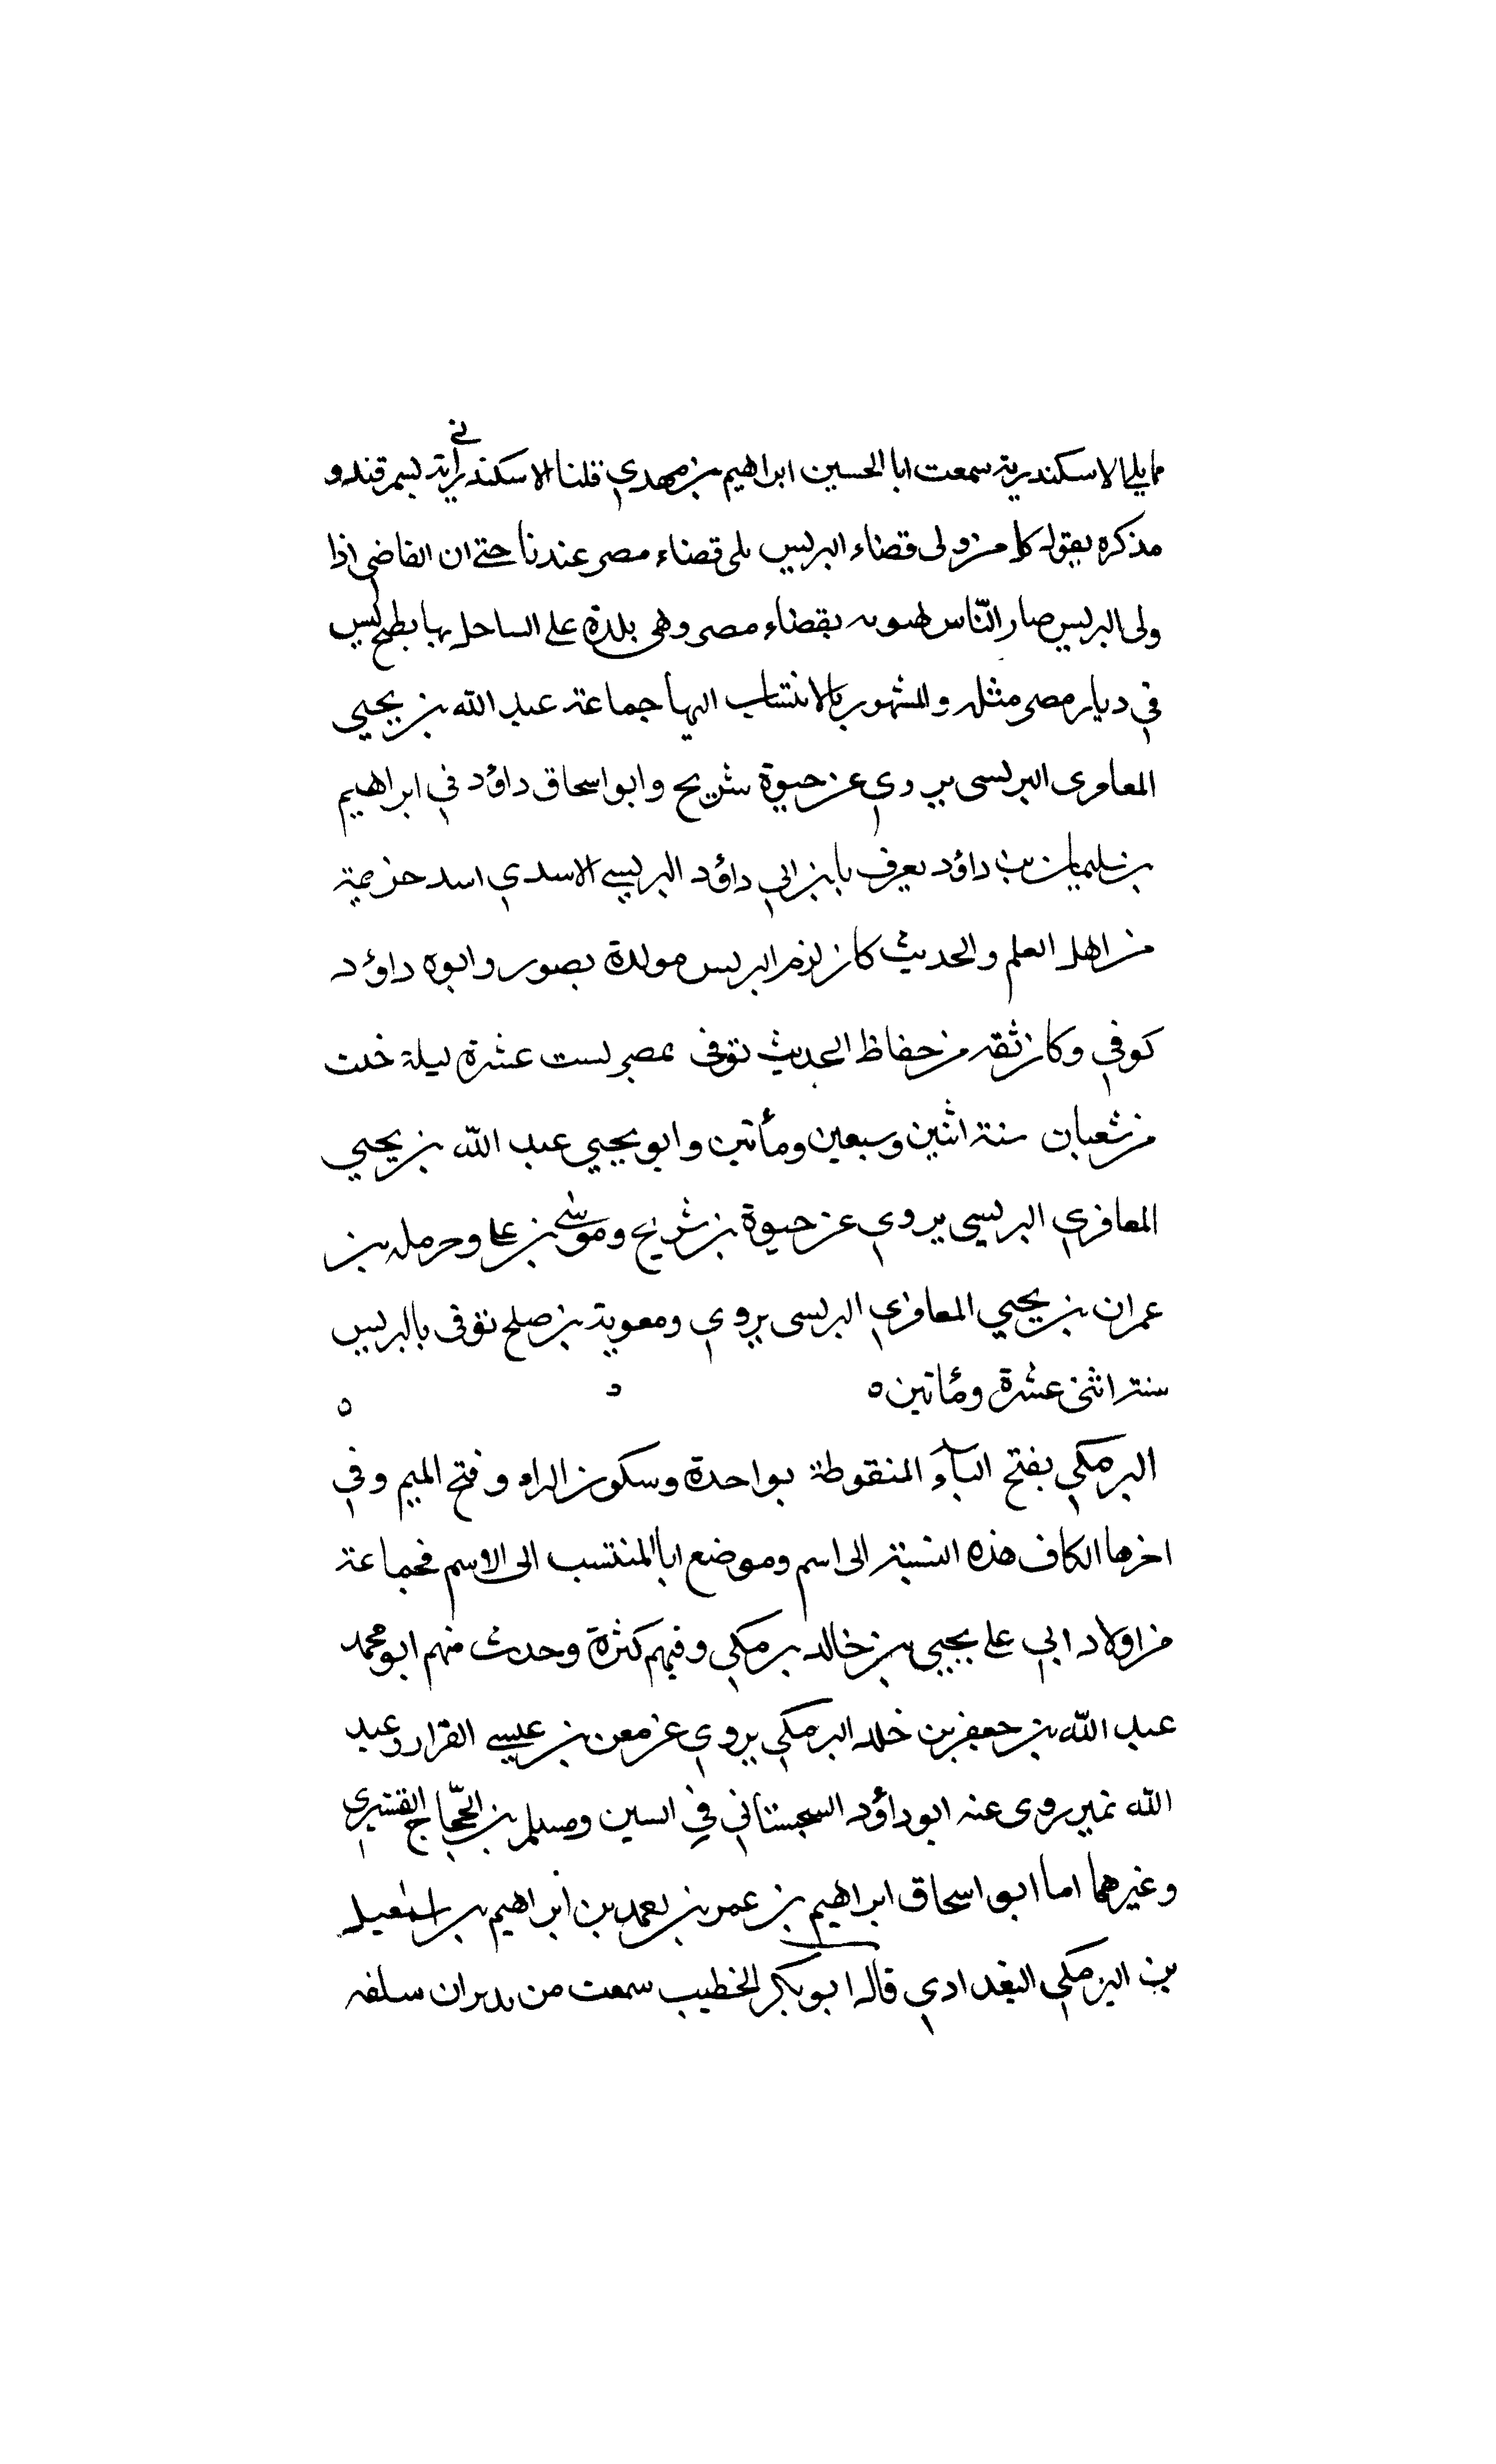 مما يلي الاسكندرية سمعت ابا الحسين ابراهيم بن مهدي قلنا الاسكندراني بسمرقند و
مذكره يقول كل من ولى قضاء البرلس يلى قضاء مصر عندنا حتى ان القاضي اذا
ولى البرلس صار الناس بقضاء مصر وهى بلدة على الساحل بها بطيخ ليس
في ديار مصر مثله والمشهور بالانتساب اليها جماعة عبد الله بن يحيى
المعافرى البرلسى يروي عن حيوة شريح وابو اسحاق داؤد في ابراهيم
بن سليمان بن داؤد يعرف بابن ابي داؤد البرلسي الاسدي اسد خزيمة
من اهل العلم والحديث كان لزم البرلس مولدة بصور وابوه داؤد
كوفي وكان ثقه من حفاظ الحديث توفى بمصر لست عشرة ليلة خلت
من شعبان سنة اثنين وسبعين ومأتين وابو يحيى عبد الله بن يحيى
المعافري البرلسي يروي عن حيوة بن شريح وموسى بن على وحرمله بن
عمران بن يحيى المعافرى البرلسى يروي ومعوية بن صلح توفى بالبرلس
سنة اثنى عشرة ومأتين ه
البرمكي بفتح الباء المنقوطة بواحدة وسكون الراء وفتح الميم وفي
اخرها الكاف هذه النسبة الى اسم وموضع اما المنتسب الى الاسم فجماعة
من اولاد ابي على يحيى بن خالد برمكي وفيهم كثرة وحدث منهم ابو محمد
عبد الله بن جعفر بن خلد البرمكي يروي عن معن بن عيسى القزاز وعبد
الله نمير روى عنه ابو داؤد السجستاني في السنن ومسلم بن الحجاج القشيري
وغيرهما اما ابو اسحاق ابراهيم بن عمر بن احمد بن ابراهيم بن اسمعيل
بن البرمكي البغدادي قال ابو بكر الخطيب سمعت من يذكر ان سلفه